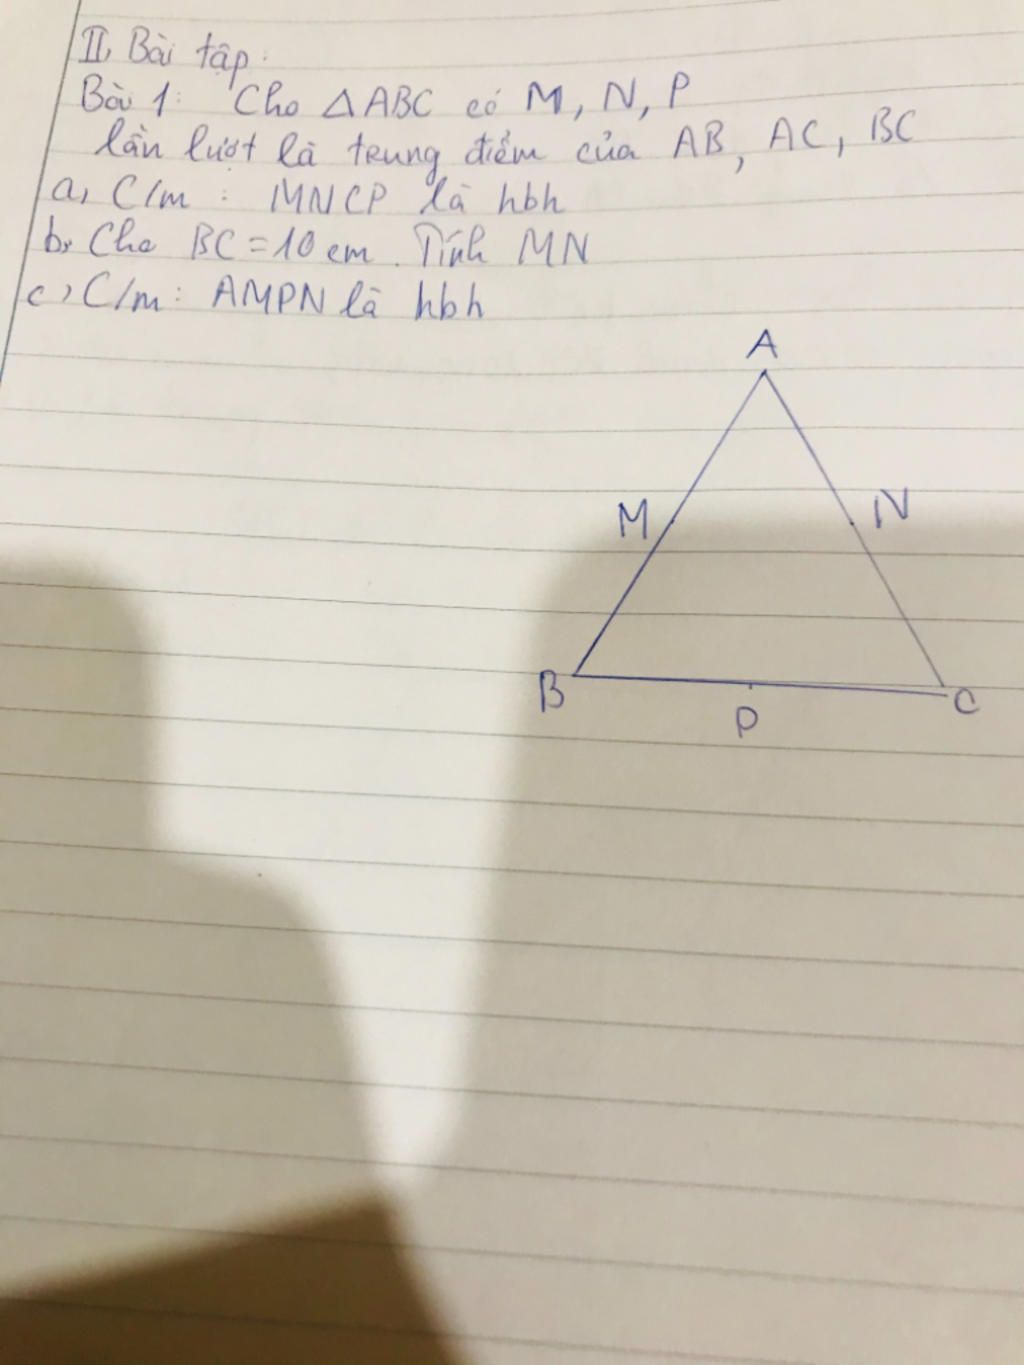 II, Bài tập:
Bài 1: Cho △ABC có M, N, P
lần lượt là trung điểm của AB, AC, BC
a, C/m : MNCP là hbh
b, Cho BC = 10 cm. Tính MN
c, C/m: AMPN là hbh
A
M N
B C
P